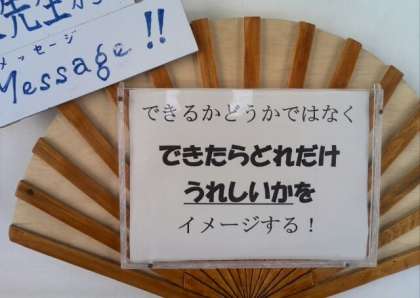 先生から
メッセージ
Message!!
できるかどうかではなく
できたらどれだけ
うれしいかを
イメージする！